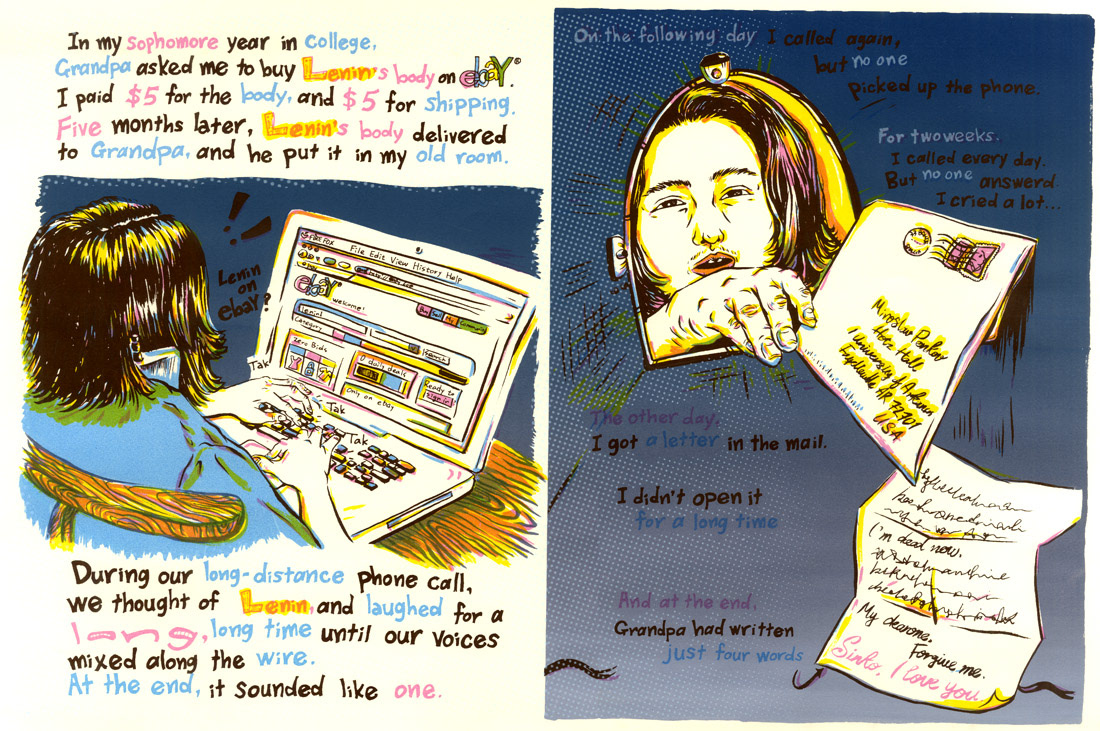 In my sophomore year in college,
Grandpa asked me to buy Lenin's body on ebaY®.
I paid $5 for the body, and $5 for shipping.
Five months later, Lenin's body delivered
to Grandpa, and he put it in my old room.
!!
Lenin
on
ebay?
FIREFOX File Edit View History Help
ebaY
welcome!
Buy Sell My Community
Lenin
Search
Category
Zero Bids
0 daily deals
Only on ebay
Ready to
sign in
Tak
Tak
Tak
During our long-distance phone call,
we thought of Lenin, and laughed for a
long, long time until our voices
mixed along the wire.
At the end, it sounded like one.
On the following day I called again,
but no one
picked up the phone.
For two weeks.
I called every day.
But no one answerd
I cried a lot...
Hall
University of
AR 72701
USA
The other day.
I got a letter in the mail.
I didn't open it
for a long time
I'm dead now.
And at the end.
Grandpa had written
just four words
My dearone.
Forgive me.
Sinko, I love you.